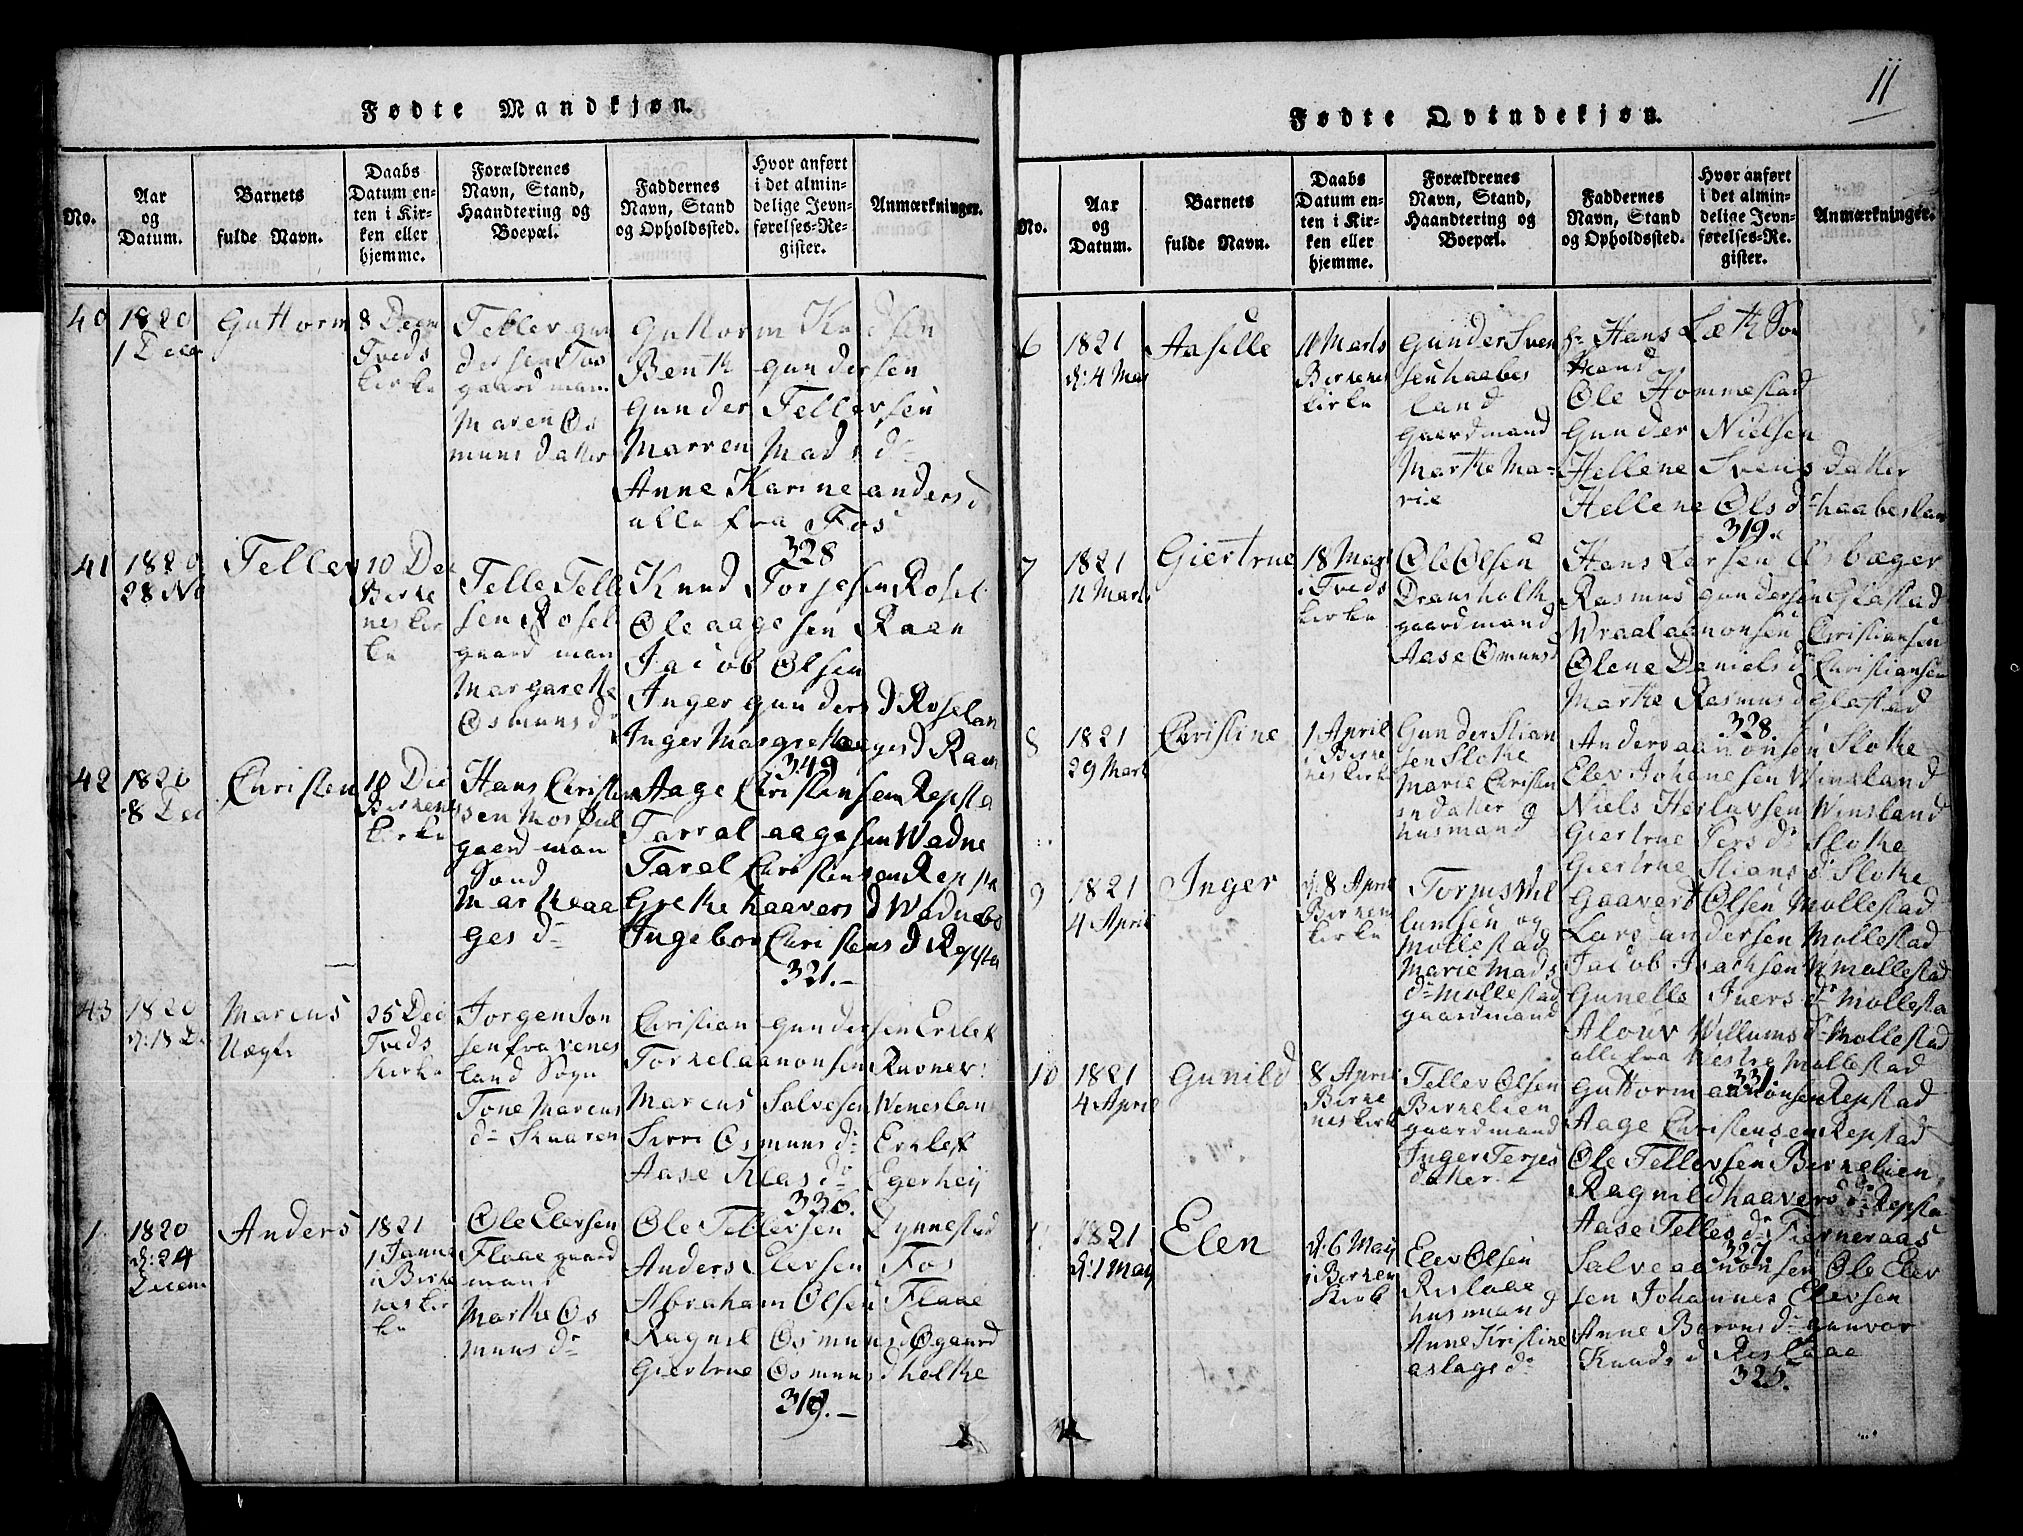 11
Fødte Mandkjøn.
No.
Aar
og
Datum.
Barnets
fulde Navn.
Daabs
Datum en-
ten i Kir-
ken eller
hjemme.
Forældrenes
Navn, Stand,
Haandtering og
Boepæl.
Faddernes
Navn, Stand
og Opholdssted.
Hvor anført
i det almin-
delige Jevn-
førelses-Re-
gister.
Anmærkninger.
40
1820
1 Decm
Guttorm
8 Decm
Tveds
kirke
Tellev gun
dersen Fos
gaard man
Maren Os
muns datter
Guttorm Knudsen
Bent gundersen
gunder Tellevsen
Marren Mads d
Anne Karine anders d
alle fra Fos
328
41
1820
28 No
Tellev
10 Dec
Birke
nes kir
ke
Telle Telle
sen Rosel
gaard man
Margarethe
Osmuns d
Knud Torjesen Rosel
Ole aagesen Raan
Jacob Olsen
Inger gunders d Roselan
Inger Margrethe aages d Raan
349
42
1820
8 Dec
Christen
10 Dec
Birkenes
kirke
Hans Christen
sen
gaard man
Marthe aa
ges d
Aage Christensen Repsta
Tarral aagesen Wadne
Tarel Christensen Repsta
Grethe haavers d Wadne
Ingebor Christens d Repsta
321.
43
1820
d: 18 De
Marcus
25 Dec
Tveds
Kirke
Jorgen Jon
sen fra venes
land Sogn
Tone Marcus
d
Christian gundersen Erklef
Torkel aanonsen
Marcus Salvesen Weneslan
Sirri Osmuns d Erklef
Aase Klas d Egerhey
336.
1
1820
d: 24
Decem
Anders
1821
1 Janu
i Birke
nes kir
ke
Ole Elevsen
Flaae gaard
mand
Marthe Os
muns d
Ole Tellevsen Tynnestad
Anders Elevsen Fos
Abraham Olsen Flaae
Ragnil Osmuns d Øgaard
Giertrue Osmuns d holthe
319.
Fødte Qvindekjøn.
No.
Aar
og
Datum.
Barnets
fulde Navn.
Daabs
Datum en-
ten i Kir-
ken eller
hjemme.
Forældrenes
Navn, Stand,
Haandtering og
Boepæl.
Faddernes
Navn, Stand
og Opholdssted.
Hvor anført
i det almin-
delige Jevn-
førelses-Re-
gister.
Anmærkninger.
6
1821
d: 4 Mar
Aaselle
11 Marts
Birkenes
kirke
Gunder Sven
sen haabes
land
gaardmand
Marthe Ma-
rie
Hr Hans
Ole Hommestad
Gunder Nielsen
Hellene Svens datter
Hellene Ols d haabeslan
319.
7
1821
11 Marts
Giertrue
18 Mars
i Tveds
kirke
Ole Olsen
Dransholt
gaardmand
Aase Omuns d
Hans Larsen
Rasmus gundersen Glastad
Wraal aanonsen Christiansen
Olene Daniels d Christiansen
Marthe Rasmus d Glastad
328.
8
1821
29 Mart
Christine
1 April
i Birke
nes kirke
Gunder Stian
sen Slotte
Marie Christen
sn datter
husmand
Anders aanonsen Slotte
Elev Johanesen Winsland
Niels Herlufsen Winsland
Giertrue Pers d Slotte
Giertrue Stians d Slotte
9
1821
4 April
Inger
d: 8 April
Birken
kirke
Torjus Wil
lumsen og
Mollestad
Marie Mads
d Mollestad
gaardmand
Gaavert Olsen Mollestad
Lars andersen Mollestad
Jacob Isachsen Mollestad
Gunelle Ivers d Mollesta
Alouv Willums d Mollestad
alle fra Mollestad
331.
10
1821
4 April
Gunild
8 April
Birke
nes kirke
Tellev Olsen
Birkelien
gaardmand
Inger Terjes
datter
Guttorm aanonsen Repstad
Aage Christensen Repstad
Ole Tellevsen Birkelien
Ragnild haavers d Repsta
Aase Telles d Tierneraas
327
1821
d: 1 May
Elen
d: 6 May
i Birken
Kirk
Elev Olsen
Rislaae
husmand
Anne Kristine
aslags d
Salve aanonsen Ole Elev
sen Johannes Elevsen
Anne d gunvor
Knuds d Rislaae
325.